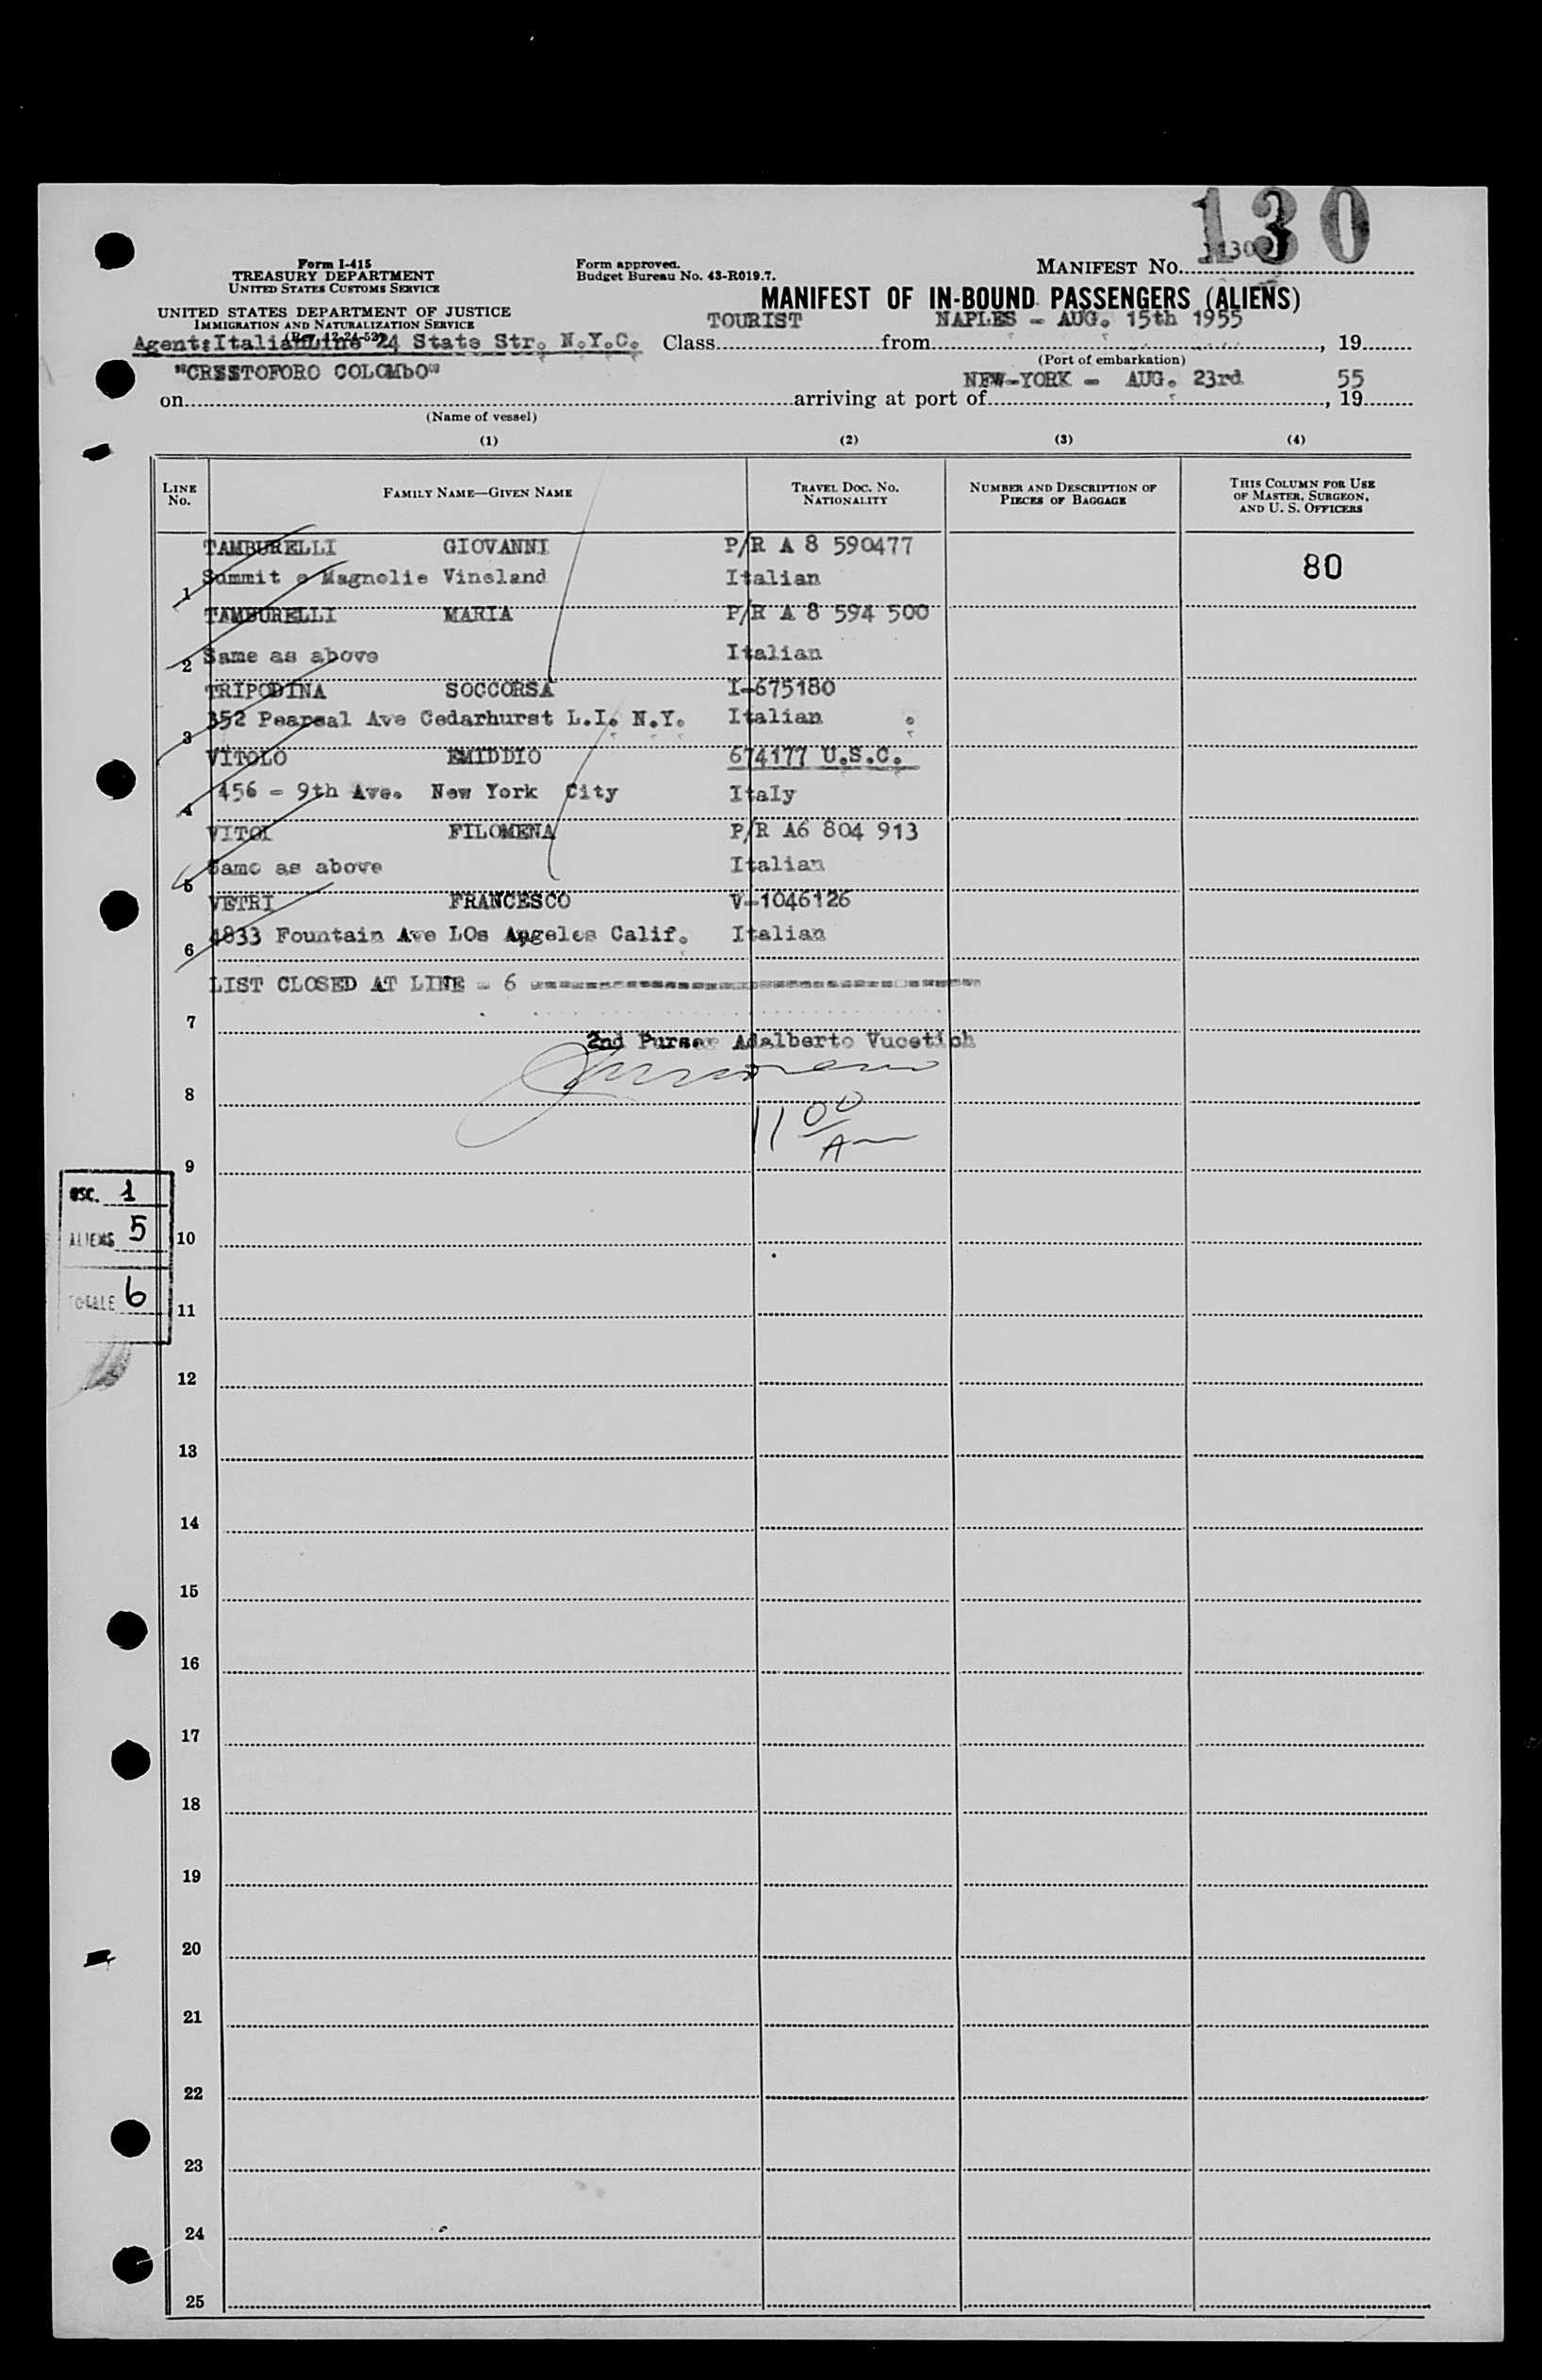 130
Form I-415
TREASURY DEPARTMENT
UNITED STATES CUSTOMS SERVICE
Form approved.
Budget Bureau No. 43-R019.7.
MANIFEST No.
UNITED STATES DEPARTMENT OF JUSTICE
IMMIGRATION AND NATURALIZATION SERVICE
(Rev. 12-24-52)
MANIFEST OF IN-BOUND PASSENGERS (ALIENS)
Agent:ItalianLine 24 State Str. N.Y.C. Class TOURIST from NAPLES - AUG. 15th 1955, 19
(Port of embarkation)
on "CRISTOFORO COLOMbO" arriving at port of NEW-YORK - AUG. 23rd, 19 55
(Name of vessel)
(1) (2) (3) (4)
LINE No. FAMILY NAME—GIVEN NAME TRAVEL DOC. No. NATIONALITY NUMBER AND DESCRIPTION OF PIECES OF BAGGAGE THIS COLUMN FOR USE OF MASTER, SURGEON, AND U. S. OFFICERS
TAMBURELLI GIOVANNI P/R A 8 590477 80
1 Summit e Magnolie Vineland Italian
TAMBURELLI MARIA P/R A 8 594 500
2 Same as above Italian
TRIPODINA SOCCORSA I-675180
3 352 Pearsal Ave Cedarhurst L.I. N.Y. Italian
VITOLO EMIDDIO 674177 U.S.C.
4 456 - 9th Ave. New York City ItaLy
FILOMENA P/R A6 804 913
5 Same as above Italian
VETRI FRANCESCO V-1046126
6 4833 Fountain Ave LOs Angeles Calif. Italian
LIST CLOSED AT LINE - 6
7
2nd Purser Adalberto Vucetich
8
11 00 Am
9
USC. 1
ALIENS 5
10
TOTALE 6
11
12
13
14
15
16
17
18
19
20
21
22
23
24
25